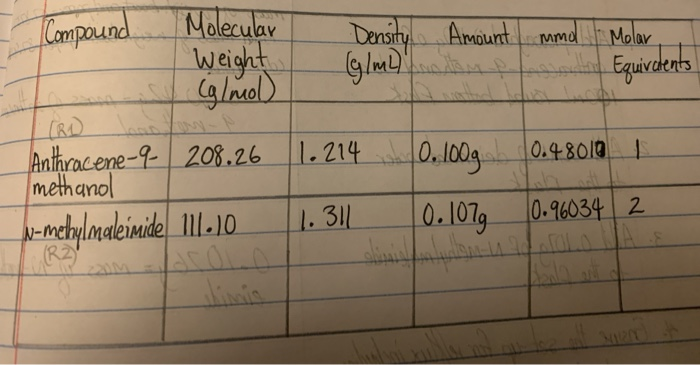 Compound Molecular Weight (g/mol) Density (g/mL) Amount mmol Molar Equivalents
(R1)
Anthracene-9- 208.26 1.214 0.100g 0.48010 1
methanol
N-methylmaleimide 111.10 1.311 0.107g 0.96034 2
(R2)